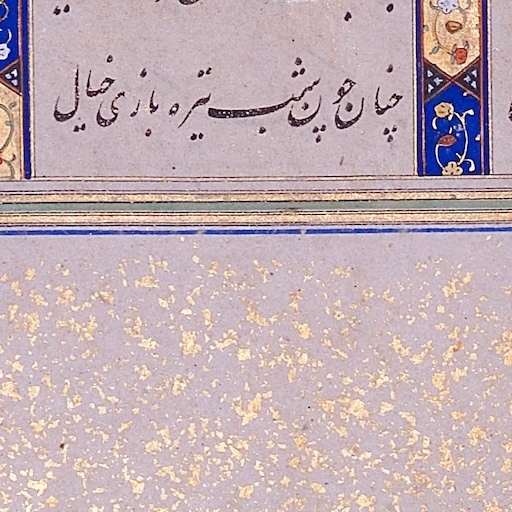 چنان چون شب تیره بازی خیال